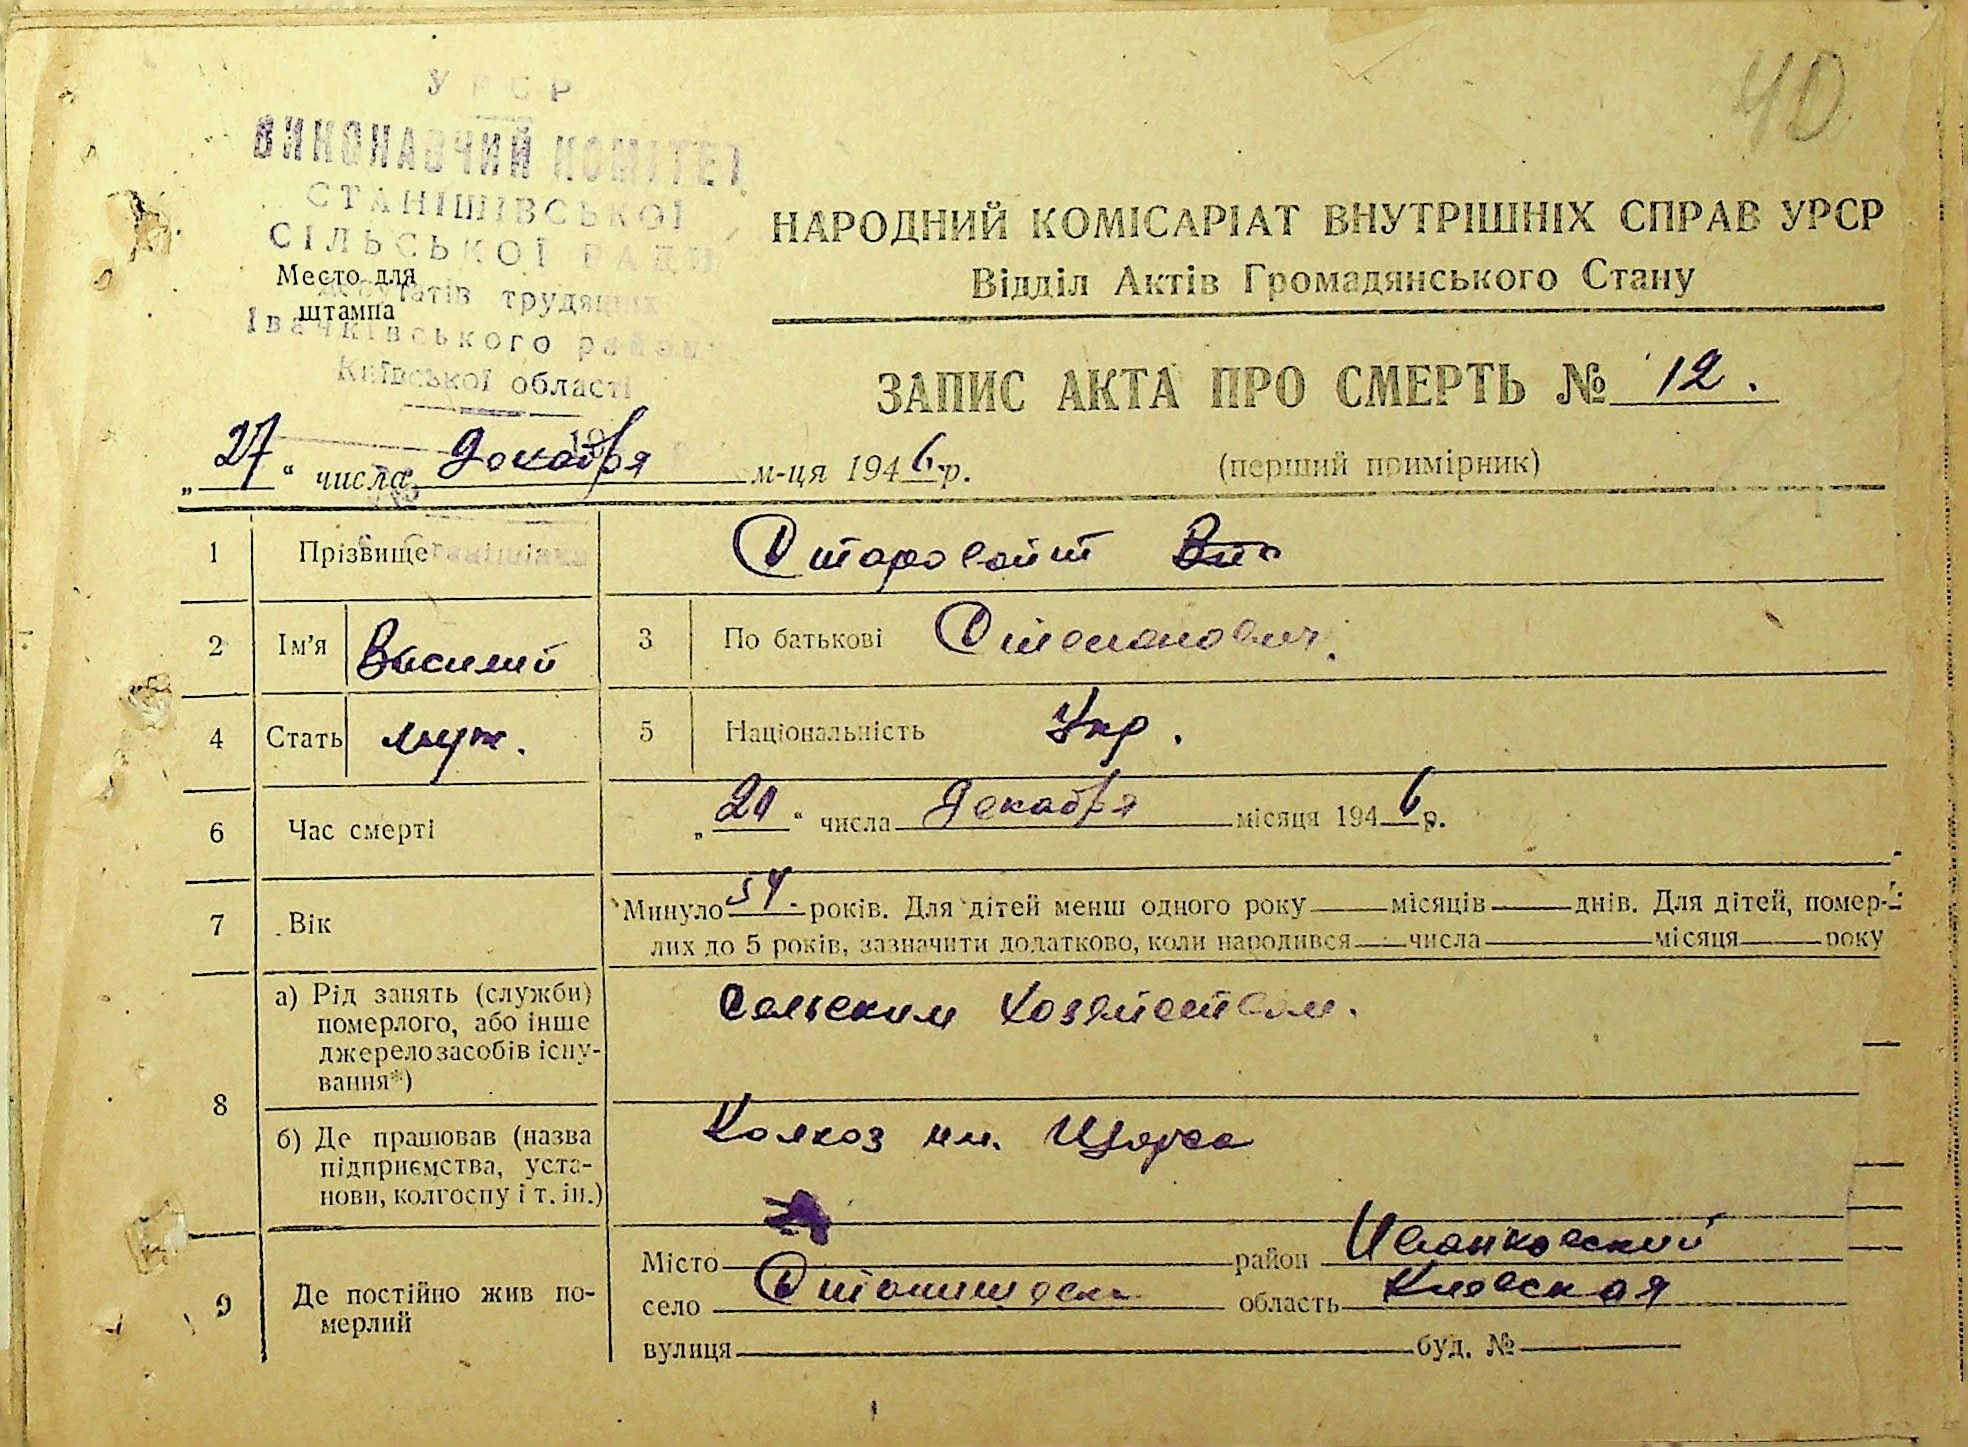 40
УРСР
ВИКОНАВЧИЙ КОМІТЕТ
СТАНІШІВСЬКОЇ
СІЛЬСЬКОЇ РАДИ
депутатів трудящих
Іванківського району
Київської області
Место для
штампа
НАРОДНИЙ КОМІСАРІАТ ВНУТРІШНІХ СПРАВ УРСР
Відділ Актів Громадянського Стану
ЗАПИС АКТА ПРО СМЕРТЬ № 12.
„27“ числа Декабря м-ця 1946 р.
(перший примірник)
1 Прізвище Старовойт
2 Ім'я Василий 3 По батькові Степанович.
4 Стать муж. 5 Національність Укр.
6 Час смерті „20“ числа Декабря місяця 1946 р.
7 Вік Минуло 54. років. Для дітей менш одного року місяців днів. Для дітей, помер-
лих до 5 років, зазначити додатково, коли народився числа місяця року
8 а) Рід занять (служби)
померлого, або інше
джерело засобів існу-
вання*)
Сельским хозяйством.
б) Де працював (назва
підприємства, уста-
нови, колгоспу і т. ін.)
Колхоз им. Щорса
9 Де постійно жив по-
мерлий
Місто район Иванковский
село область Киевская
вулиця буд. №